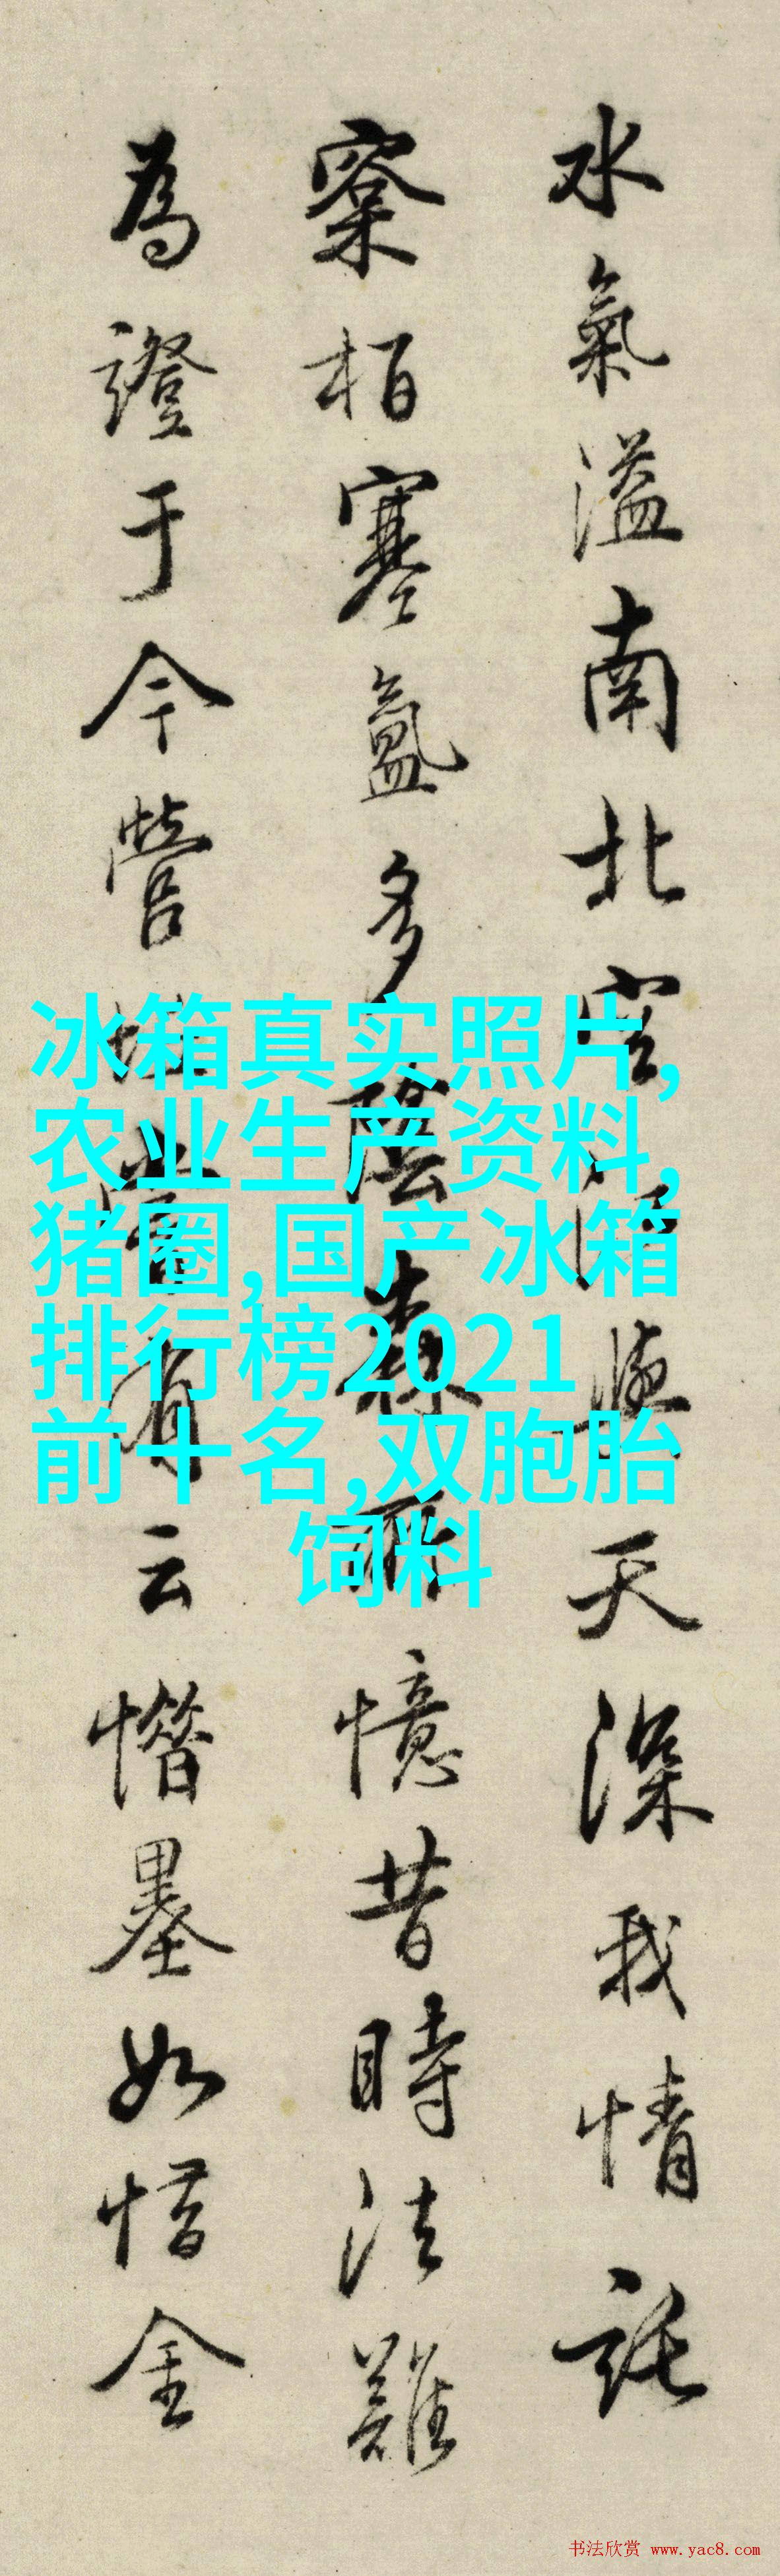 水氣溢南北空江照天深我情託
寥栢寒氲多陰森所憶昔時法難
為證于今營有云惜墨如惜金
冰箱真实照片,
农业生产资料,
猪圈,国产冰箱
排行榜2021
前十名,双胞胎
饲料
书法欣赏 www.yac8.com